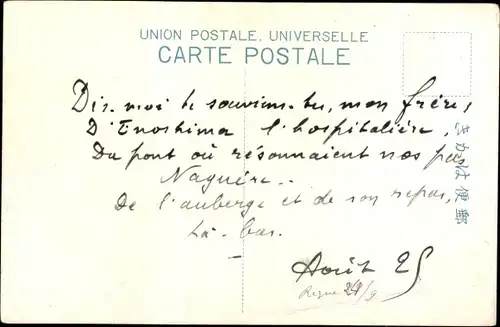 UNION POSTALE, UNIVERSELLE
CARTE POSTALE
Dis-moi te souviens-tu, mon frère,
D'Enoshima l'hospitalière,
Du pont où résonnaient nos pas
Naguère..
De l'auberge et de son repas,
Là-bas.
Août 25
きがは便郵